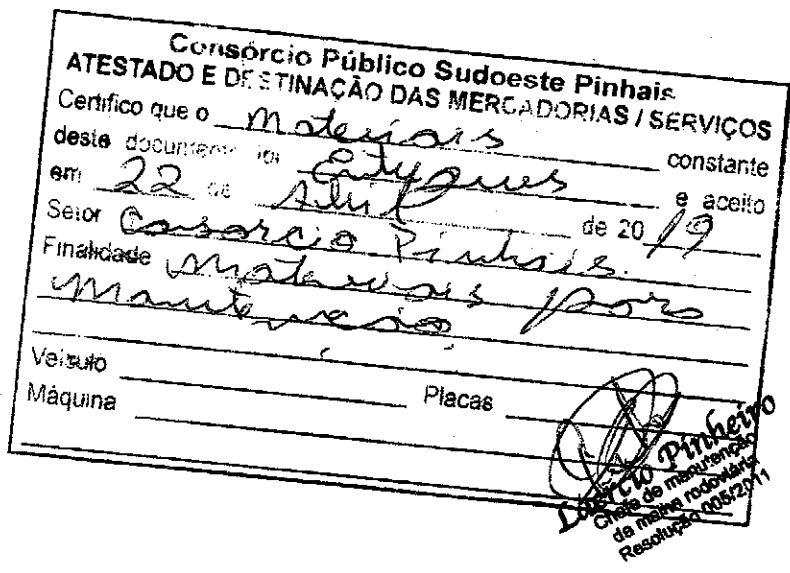 Consórcio Público Sudoeste Pinhais
ATESTADO E DESTINAÇÃO DAS MERCADORIAS / SERVIÇOS
Certifico que o Materiais constante
deste documento foi Entregues e aceito
em 22 de Abril de 20 19
Setor Consorcio Pinhais.
Finalidade Materiais para
Manutenção
Veísulo
Máquina Placas
Laércio Pinheiro
Chefe de manutenção
da malha rodoviária
Resolução 005/2011